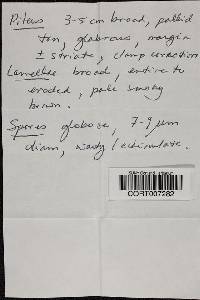 Pileus 3-5 cm broad, pallid
tan, glabrous, margin
± striate, clamp connection
Lamellae broad, entire to
eroded, pale smoky
brown.
Spores globose, 7-9 μm
diam, warty / echinulate.
CORT007282